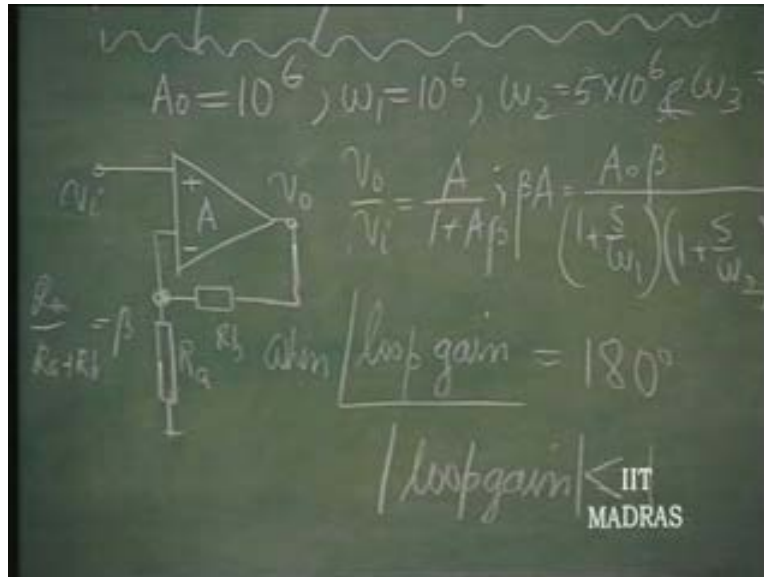 A₀ = 10⁶, ω₁ = 10⁶, ω₂ = 5×10⁶ & ω₃ =
vᵢ
+
A
-
v₀
v₀/vᵢ = A/(1+Aβ) ; βA = A₀β/(1+s/ω₁)(1+s/ω₂
Rₐ/(Rₐ+R_b) = β
Rₐ
R_b
when ∠loop gain = 180°
|loop gain| <
IIT
MADRAS